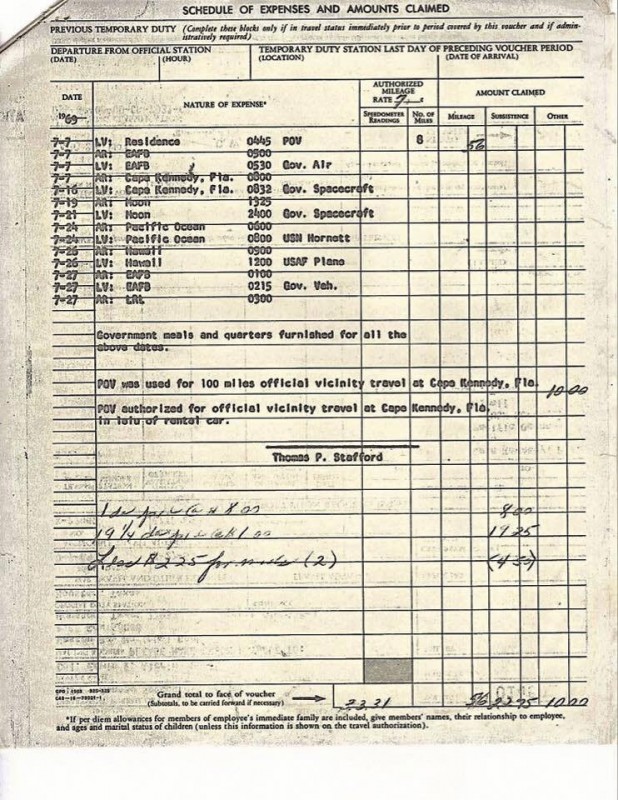 SCHEDULE OF EXPENSES AND AMOUNTS CLAIMED
PREVIOUS TEMPORARY DUTY (Complete these blocks only if in travel status immediately prior to period covered by this voucher and if admin-
istratively required)
DEPARTURE FROM OFFICIAL STATION
(DATE) (HOUR)
TEMPORARY DUTY STATION LAST DAY OF PRECEDING VOUCHER PERIOD
(LOCATION) (DATE OF ARRIVAL)
DATE
1969
NATURE OF EXPENSE*
AUTHORIZED
MILEAGE
RATE 7 ¢
SPEEDOMETER
READINGS
NO. OF
MILES
AMOUNT CLAIMED
MILEAGE SUBSISTENCE OTHER
7-7 LV: Residence 0445 POV 8 56
7-7 AR: EAFB 0500
7-7 LV: EAFB 0530 Gov. Air
7-7 AR: Cape Kennedy, Fla. 0800
7-16 LV: Cape Kennedy, Fla. 0832 Gov. Spacecraft
7-19 AR: Moon 1325
7-21 LV: Moon 2400 Gov. Spacecraft
7-24 AR: Pacific Ocean 0600
7-24 LV: Pacific Ocean 0800 USN Hornett
7-26 AR: Hawaii 0900
7-26 LV: Hawaii 1200 USAF Plane
7-27 AR: EAFB 0100
7-27 LV: EAFB 0215 Gov. Veh.
7-27 AR: 0300
Government meals and quarters furnished for all the
above dates.
POV was used for 100 miles official vicinity travel at Cape Kennedy, Fla. 10.00
POV authorized for official vicinity travel at Cape Kennedy, Fla.
in leiu of rental car.
Thomas P. Stafford
1 day 8 00 8 00
19 1/4 1 00 19 25
2 25 for meals (2) (4 50)
Grand total to face of voucher
(Subtotals, to be carried forward if necessary)
33.31 56 22 75 10 00
*If per diem allowances for members of employee's immediate family are included, give members' names, their relationship to employee,
and ages and marital status of children (unless this information is shown on the travel authorization).